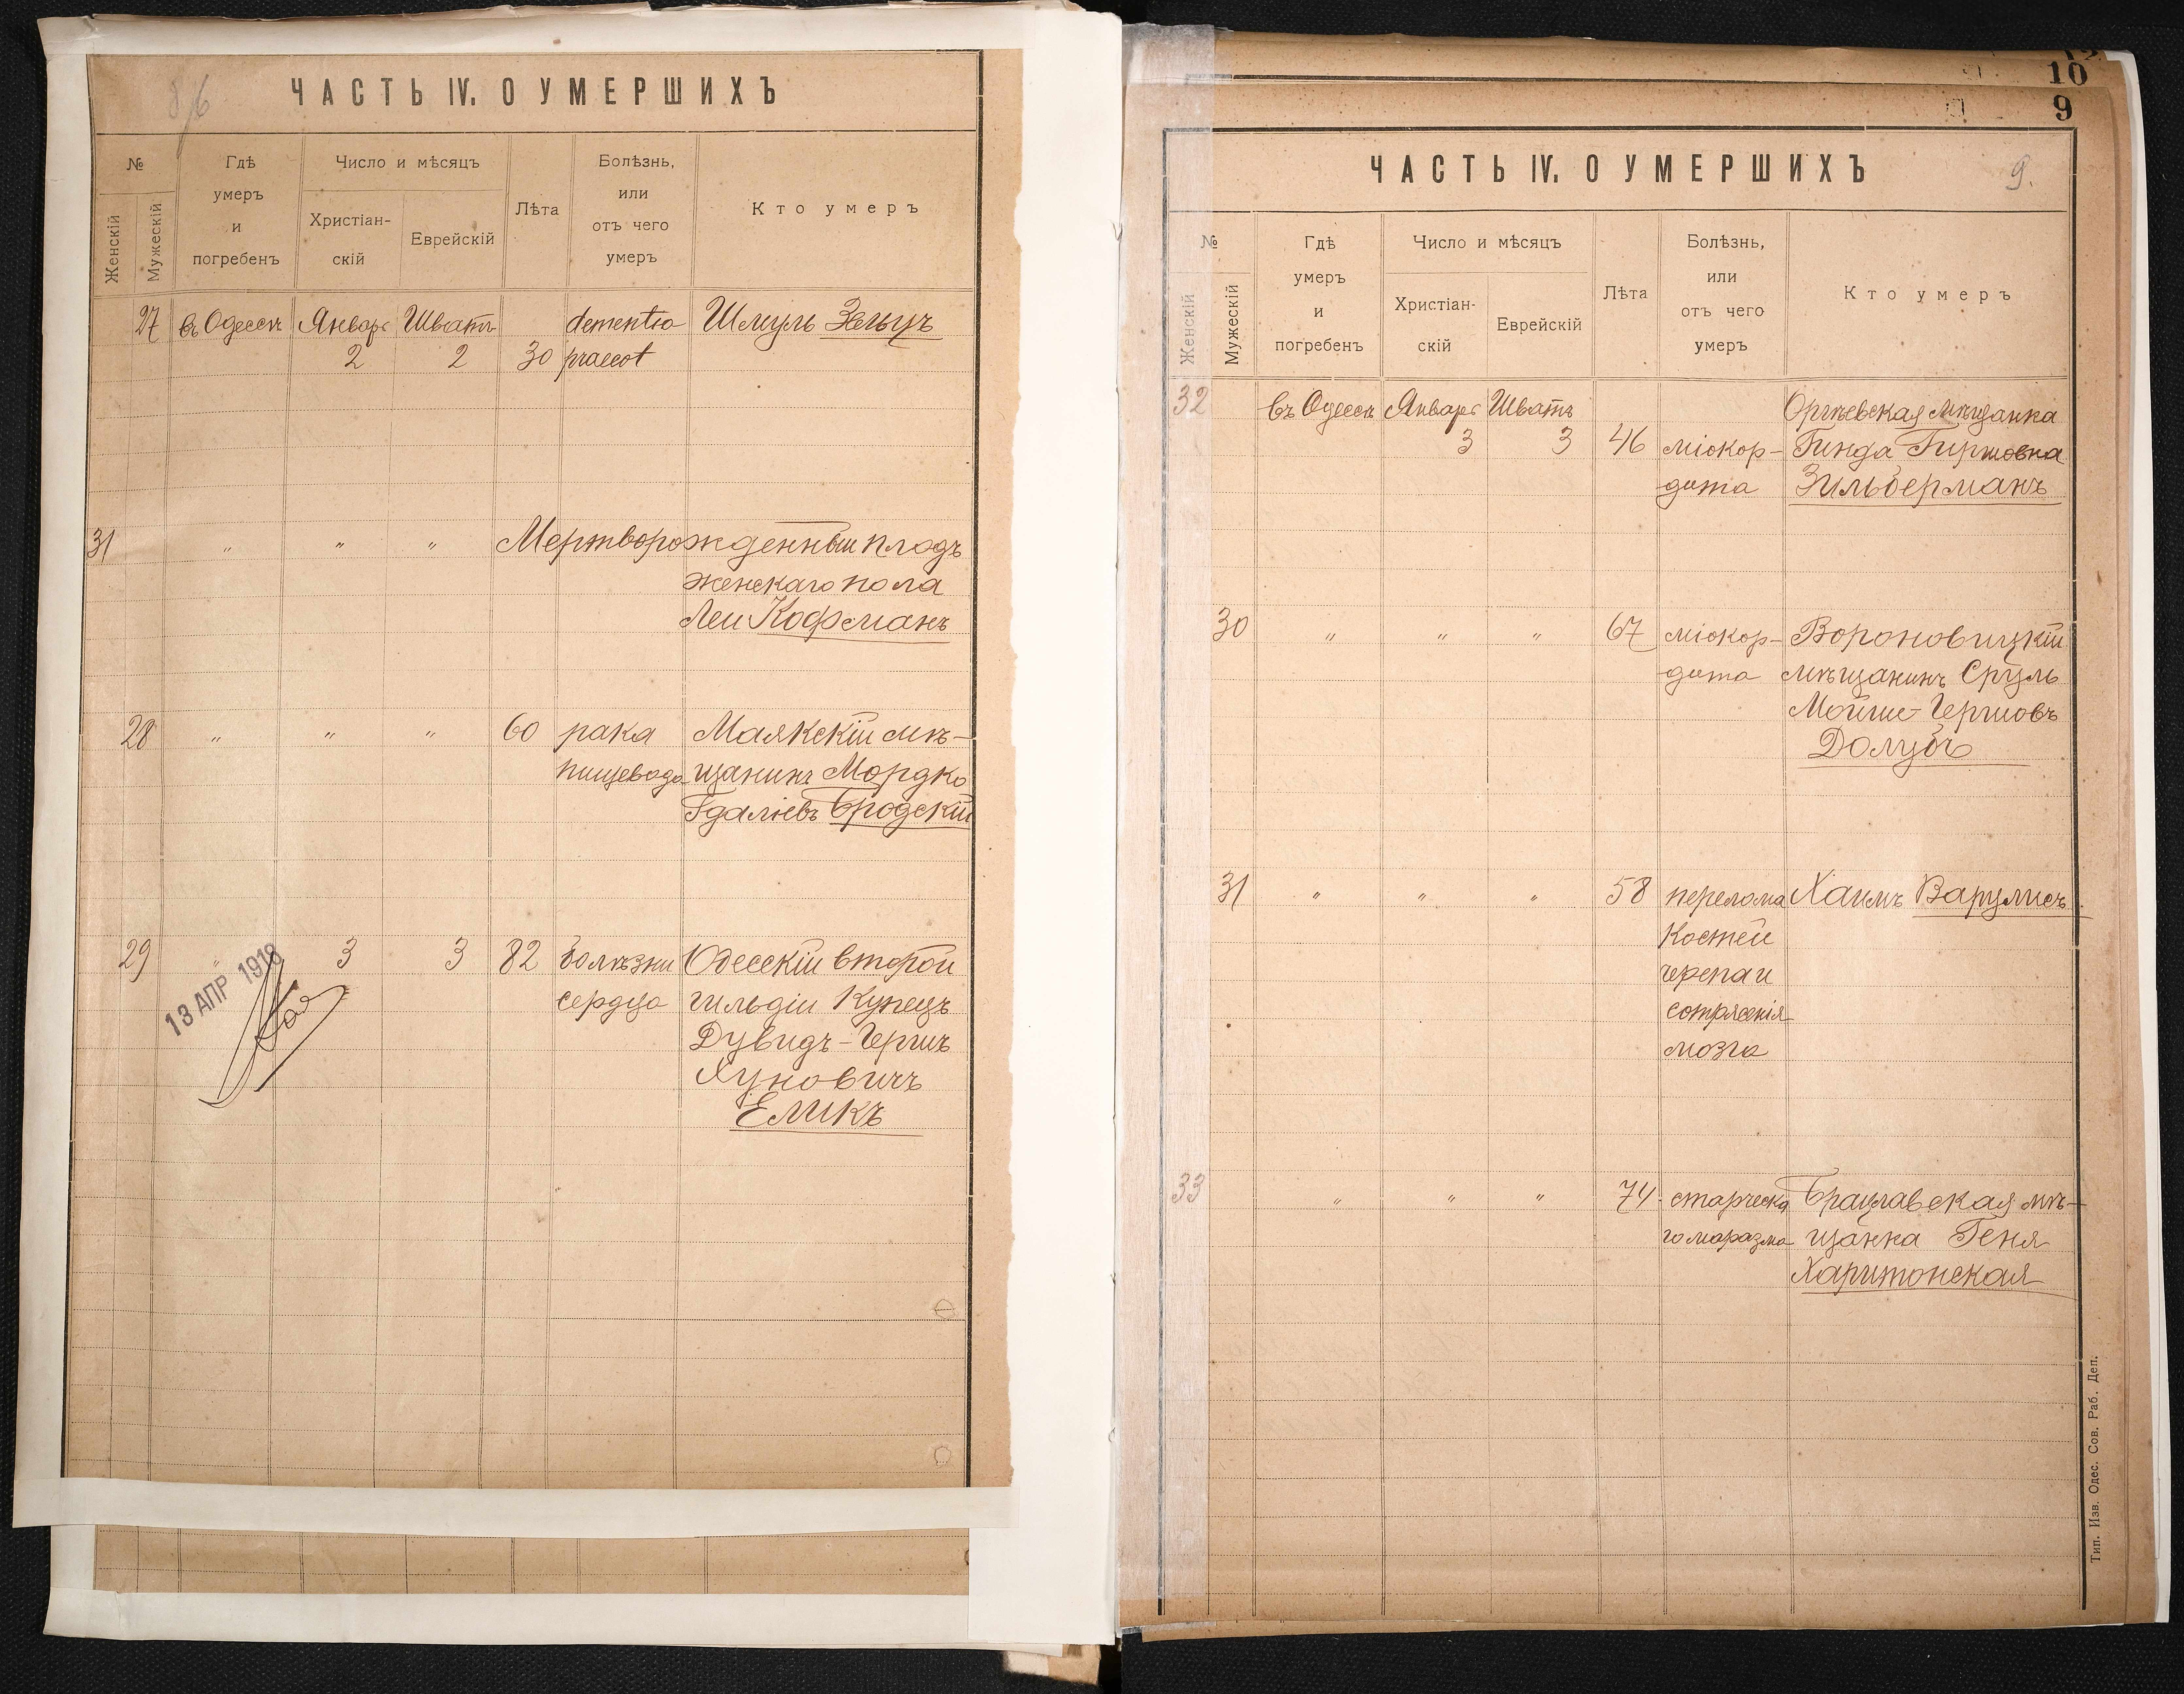 ЧАСТЬ IV. О УМЕРШИХЪ
№
Женскій
Мужескій
Гдѣ
умеръ
и
погребенъ
Число и мѣсяцъ
Христіан-
скій
Еврейскій
Лѣта
Болѣзнь,
или
отъ чего
умеръ
Кто умеръ
27 въ Одессѣ Январь Шватъ dementia Шмуль Зельцъ
2 2 30 praecot
31 " " " Мертворожденный плодъ
женскаго пола
Леи Кофманъ
28 " " " 60 рака Маякскій мѣ-
пищевода щанинъ Мордко
Гдаліевъ Бродскій
29 " 3 3 82 болѣзни Одесскій второй
сердца гильдіи купецъ
Дувидъ-Гершъ
Хуновичъ
Еликъ
13 АПР 1918
10
9
ЧАСТЬ IV. О УМЕРШИХЪ
9.
№
Женскій
Мужескій
Гдѣ
умеръ
и
погребенъ
Число и мѣсяцъ
Христіан-
скій
Еврейскій
Лѣта
Болѣзнь,
или
отъ чего
умеръ
Кто умеръ
32 въ Одессѣ Январь Шватъ Оргѣевская мѣщанка
3 3 46 міокор- Гинда Гиршовна
дита Зильберманъ
30 " " " 67 міокор- Вороновицкій
дита мѣщанинъ Сруль
Мойше-Гершовъ
31 " " " 58 перелома Хаимъ Варулисъ
костей
черепа и
сотрясенія
мозга
33 " " " 74 старческа Брацлавская мѣ-
го маразма щанка Геня
Харитонская
Тип. Изв. Одес. Сов. Раб. Деп.